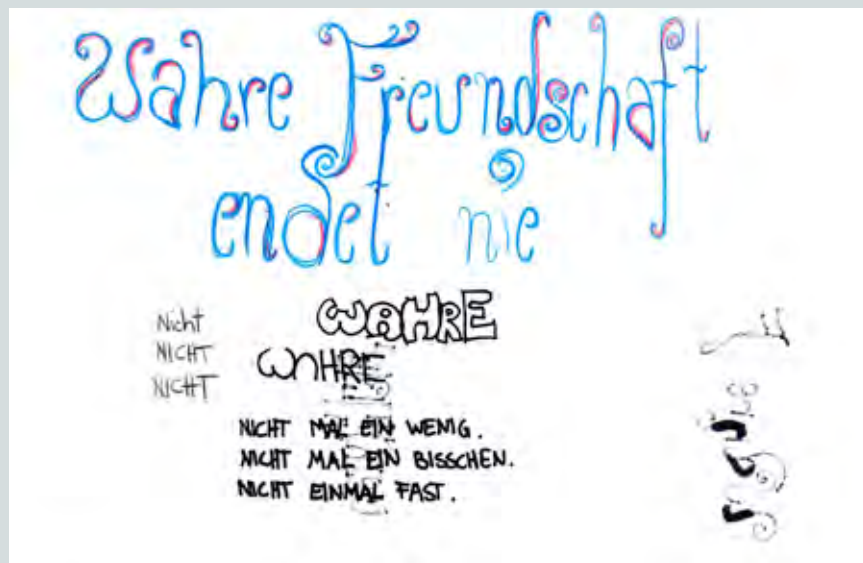 Wahre Freundschaft
endet nie
Nicht
NICHT
NICHT
WAHRE
WAHRE
NICHT MAL EIN WENIG.
NICHT MAL EIN BISSCHEN.
NICHT EINMAL FAST.